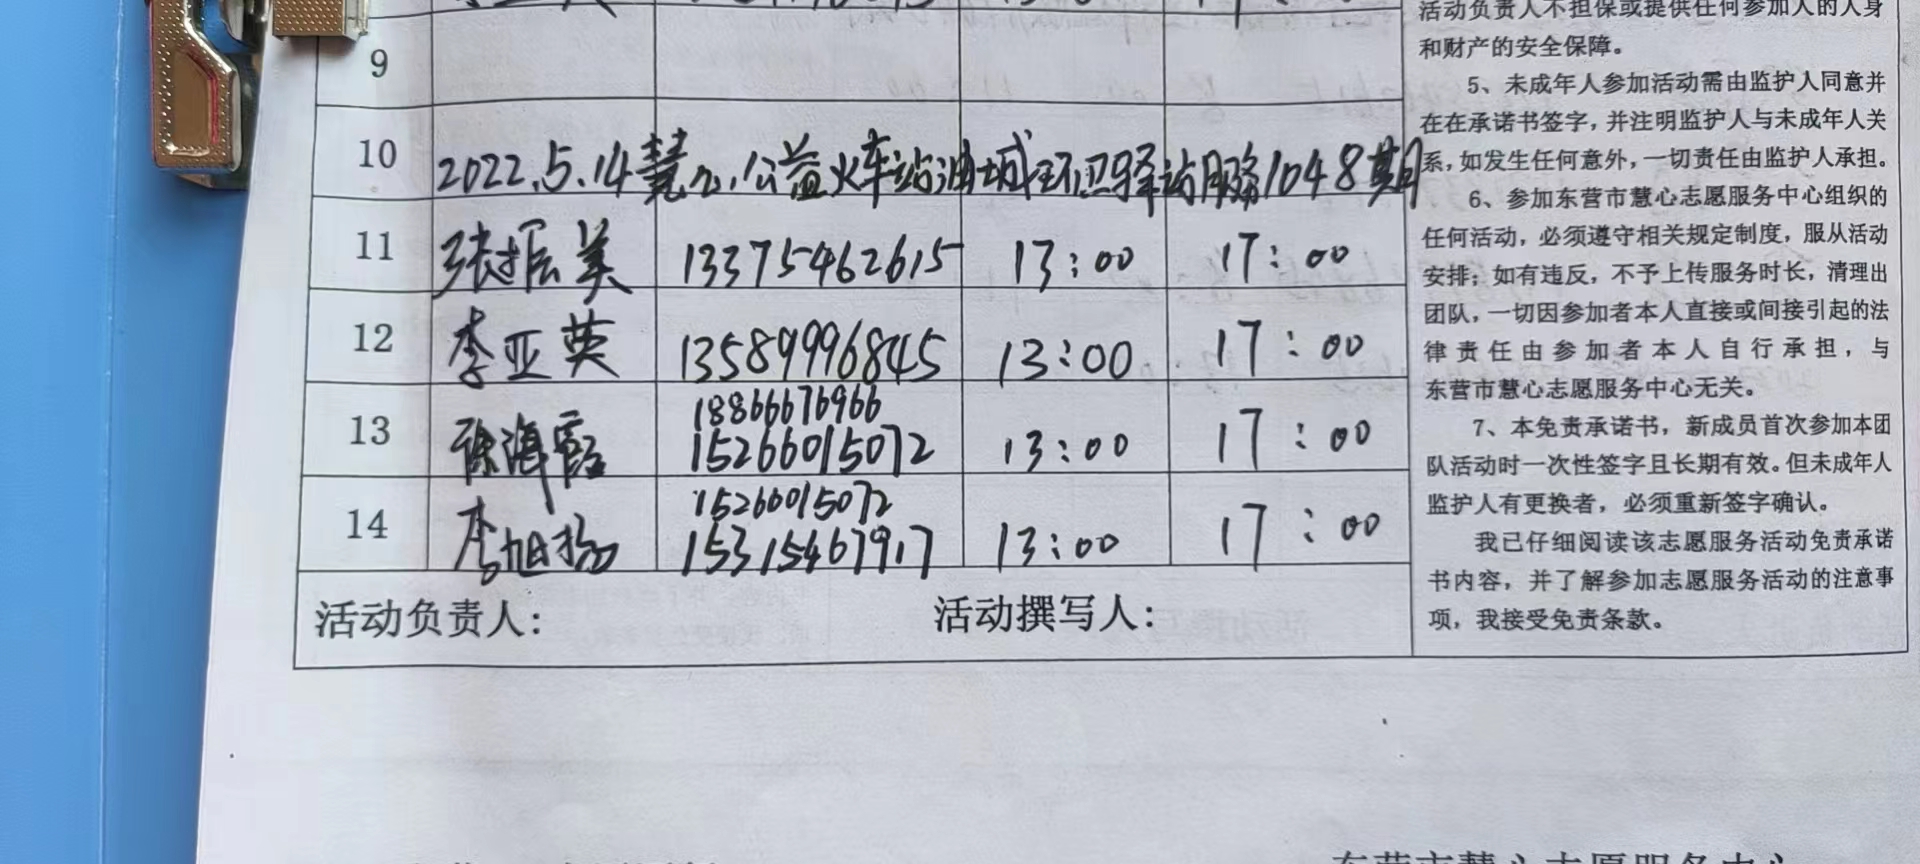 活动负责人不担保或提供任何参加人的人身
和财产的安全保障。
9
5、未成年人参加活动需由监护人同意并
在在承诺书签字，并注明监护人与未成年人关
系，如发生任何意外，一切责任由监护人承担。
10 2022.5.14慧心公益火车站油城环卫驿站服务1048期
6、参加东营市慧心志愿服务中心组织的
任何活动，必须遵守相关规定制度，服从活动
安排；如有违反，不予上传服务时长，清理出
团队，一切因参加者本人直接或间接引起的法
律责任由参加者本人自行承担，与
东营市慧心志愿服务中心无关。
11 张振美 13375462615 13:00 17:00
12 李亚英 13589996845 13:00 17:00
18866676966
13 徐海霞 15266015072 13:00 17:00
15266015072
14 李旭扬 15315467917 13:00 17:00
7、本免责承诺书，新成员首次参加本团
队活动时一次性签字且长期有效。但未成年人
监护人有更换者，必须重新签字确认。
我已仔细阅读该志愿服务活动免责承诺
书内容，并了解参加志愿服务活动的注意事
项，我接受免责条款。
活动负责人： 活动撰写人：
东营市慧心志愿服务中心